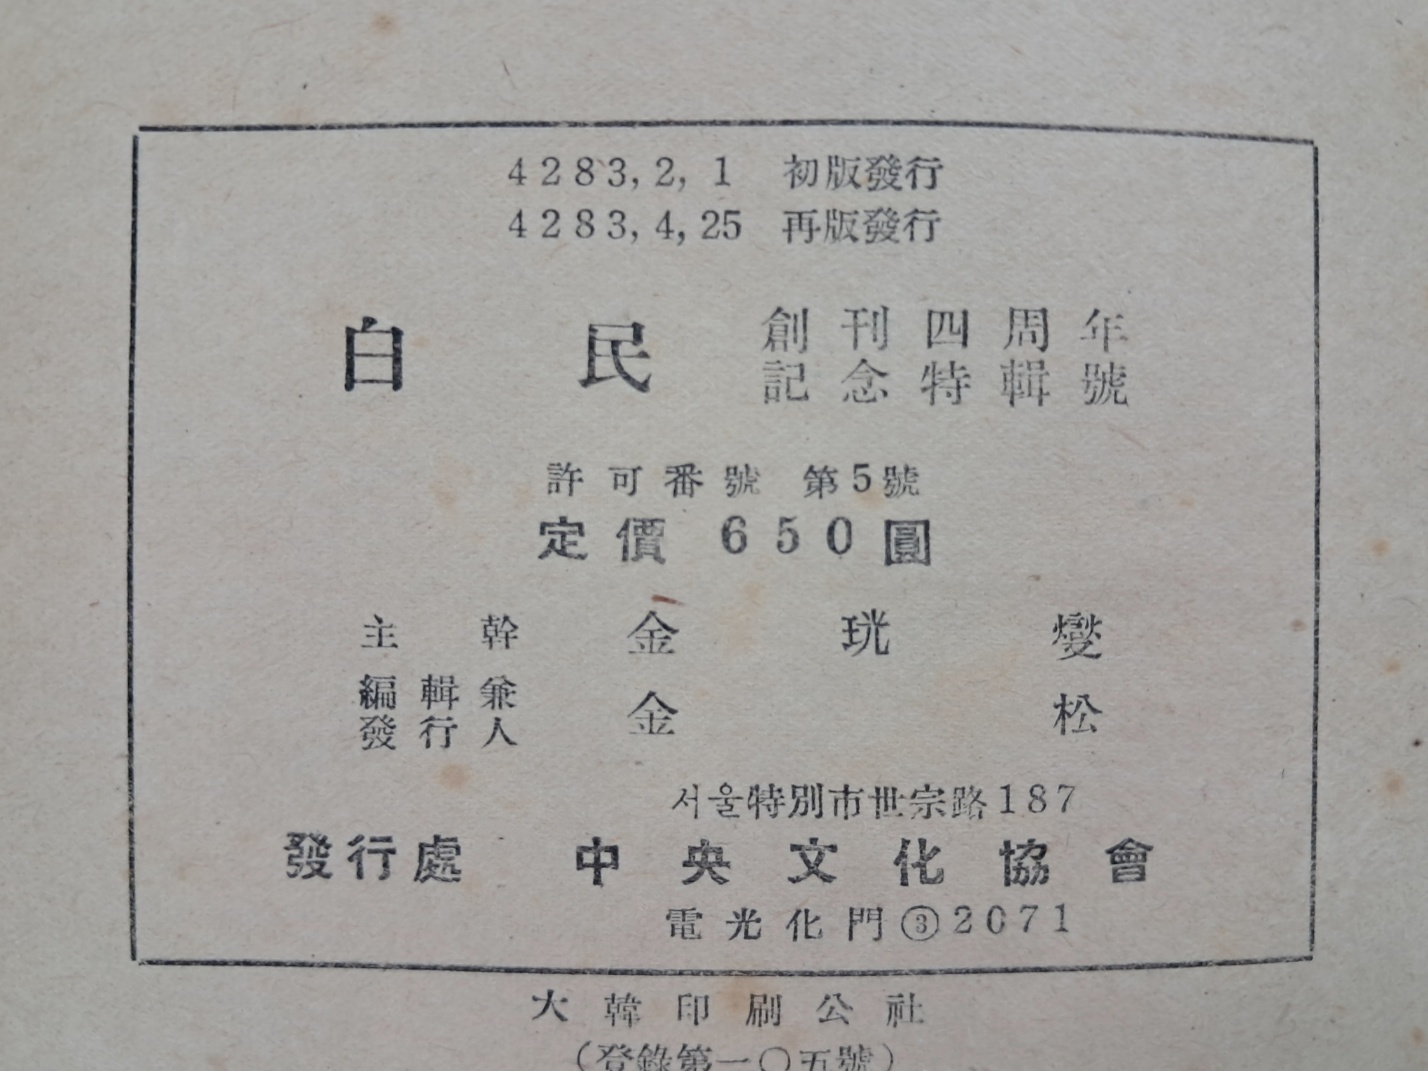 4283, 2, 1 初版發行
4283, 4, 25 再版發行
白民 創刊四周年
記念特輯號
許可番號 第5號
定價 650圓
主幹 金珖燮
編輯兼
發行人 金松
서울特別市世宗路187
發行處 中央文化協會
電光化門③2071
大韓印刷公社
(登錄第一〇五號)